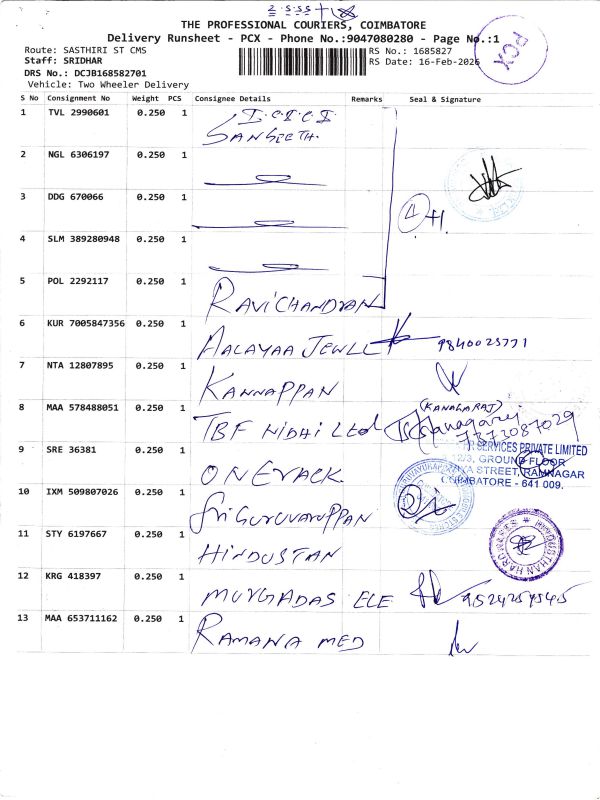 THE PROFESSIONAL COURIERS, COIMBATORE
Delivery Runsheet - PCX - Phone No.:9047080280 - Page No.:1
PCX
Route: SASTHIRI ST CMS
RS No.: 1685827
Staff: SRIDHAR
RS Date: 16-Feb-2026
DRS No.: DCJB168582701
Vehicle: Two Wheeler Delivery
S No Consignment No Weight PCS Consignee Details Remarks Seal & Signature
1 TVL 2990601 0.250 1 I.C.I.C.I
SANGEETH.
2 NGL 6306197 0.250 1
3 DDG 670066 0.250 1
4
4 SLM 389280948 0.250 1
5 POL 2292117 0.250 1 RAVICHANDRAN
6 KUR 7005847356 0.250 1 AALAYAA JEWLL 9840023771
7 NTA 12807895 0.250 1 KANNAPPAN
8 MAA 578488051 0.250 1 TBF NIDHI Ltd (KANAGARAJ)
7373087029
SERVICES PRIVATE LIMITED
12/3, GROUND FLOOR
STREET, RAMNAGAR
COIMBATORE - 641 009.
9 SRE 36381 0.250 1 ONERACK.
10 IXM 509807026 0.250 1 Sri GURUVAYUPPAN
11 STY 6197667 0.250 1 HINDUSTAN
HINDUSTHAN HARDWARES
12 KRG 418397 0.250 1 MURGADAS ELE
13 MAA 653711162 0.250 1 RAMANA MED